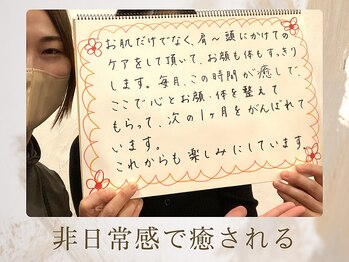 お肌だけでなく、肩〜頭にかけての
ケアをして頂いて、お顔も体もすっきり
します。毎月、この時間が癒しで、
ここで心とお顔・体を整えて
もらって、次の1ヶ月をがんばれて
います。
これからも楽しみにしています。
非日常感で癒される